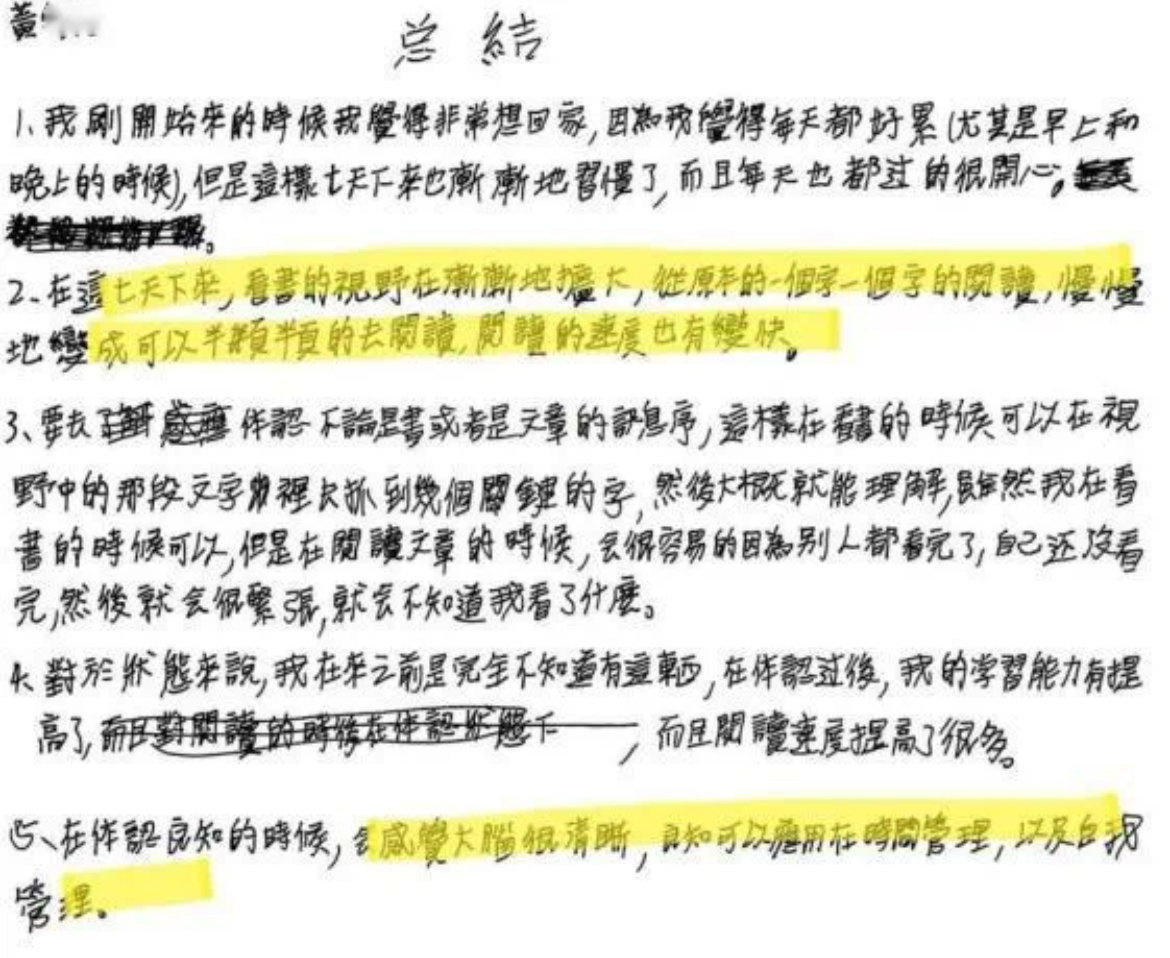 黃
总 結
1、我剛開始來的時候我覺得非常想回家,因為我覺得每天都好累(尤其是早上和
晚上的時候),但是這樣七天下來也漸漸地習慣了,而且每天也都过的很開心。
2、在這七天下來,看書的視野在漸漸地擴大,從原本的一個字一個字的閱讀,慢慢
地變成可以半頁半頁的去閱讀,閱讀的速度也有變快。
3、要去 体認不論是書或者是文章的訊息序,這樣在看書的時候可以在視
野中的那段文字裡去抓到幾個關鍵的字,然後大概就能理解,雖然我在看
書的時候可以,但是在閱讀文章的時候,会很容易的因為別人都看完了,自己还沒看
完,然後就会很緊張,就会不知道我看了什麼。
4、對於狀態來說,我在來之前是完全不知道有這東西,在体認过後,我的学習能力有提
高了,而且對閱讀的時後在体認狀態下,而且閱讀速度提高了很多。
5、在体認良知的時候,会感覺大腦很清晰,良知可以應用在時間管理,以及自我
管理。